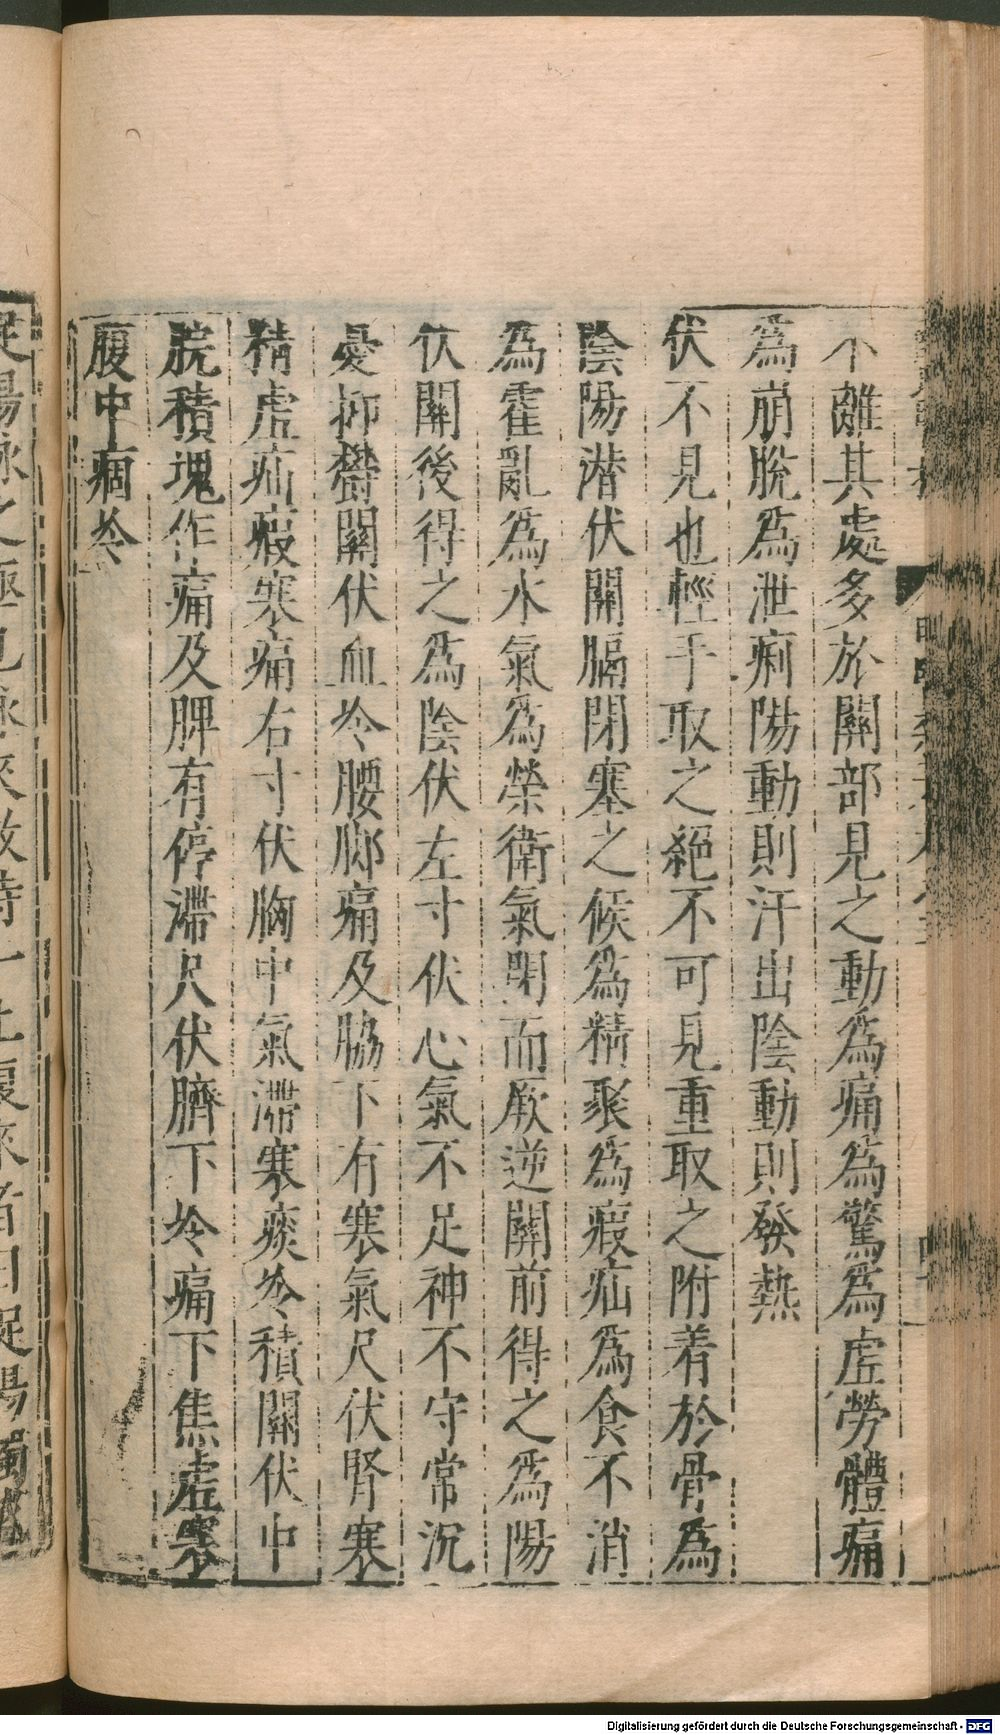 不離其處多於關部見之動為痛為驚為虛勞體痛
為崩脫為泄痢陽動則汗出陰動則發熱
伏不見也輕手取之絕不可見重取之附着於骨為
陰陽潛伏關膈閉塞之候為積聚為瘕疝為食不消
為霍亂為水氣為榮衛氣閉而厥逆關前得之為陽
伏關後得之為陰伏左寸伏心氣不足神不守常沉
憂抑鬱關伏血冷腰脚痛及脇下有寒氣尺伏腎寒
精虛疝瘕寒痛右寸伏胸中氣滯寒痰冷積關伏中
脘積塊作痛及脾有停滯尺伏臍下冷痛下焦虛寒
腹中痼冷
Digitalisierung gefördert durch die Deutsche Forschungsgemeinschaft - DFG